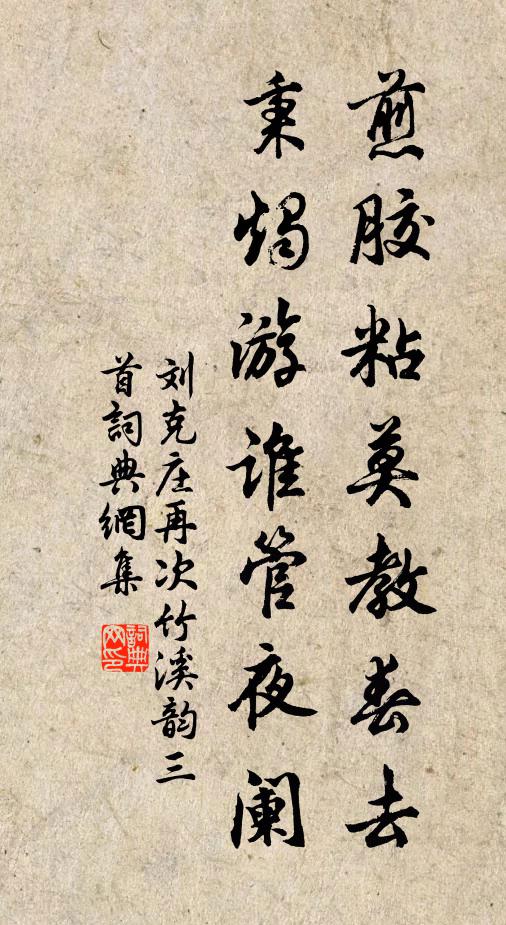 煎胶粘莫教春去
秉烛游谁管夜阑
刘克庄再次竹溪韵三
首詞典網集
詞典网印